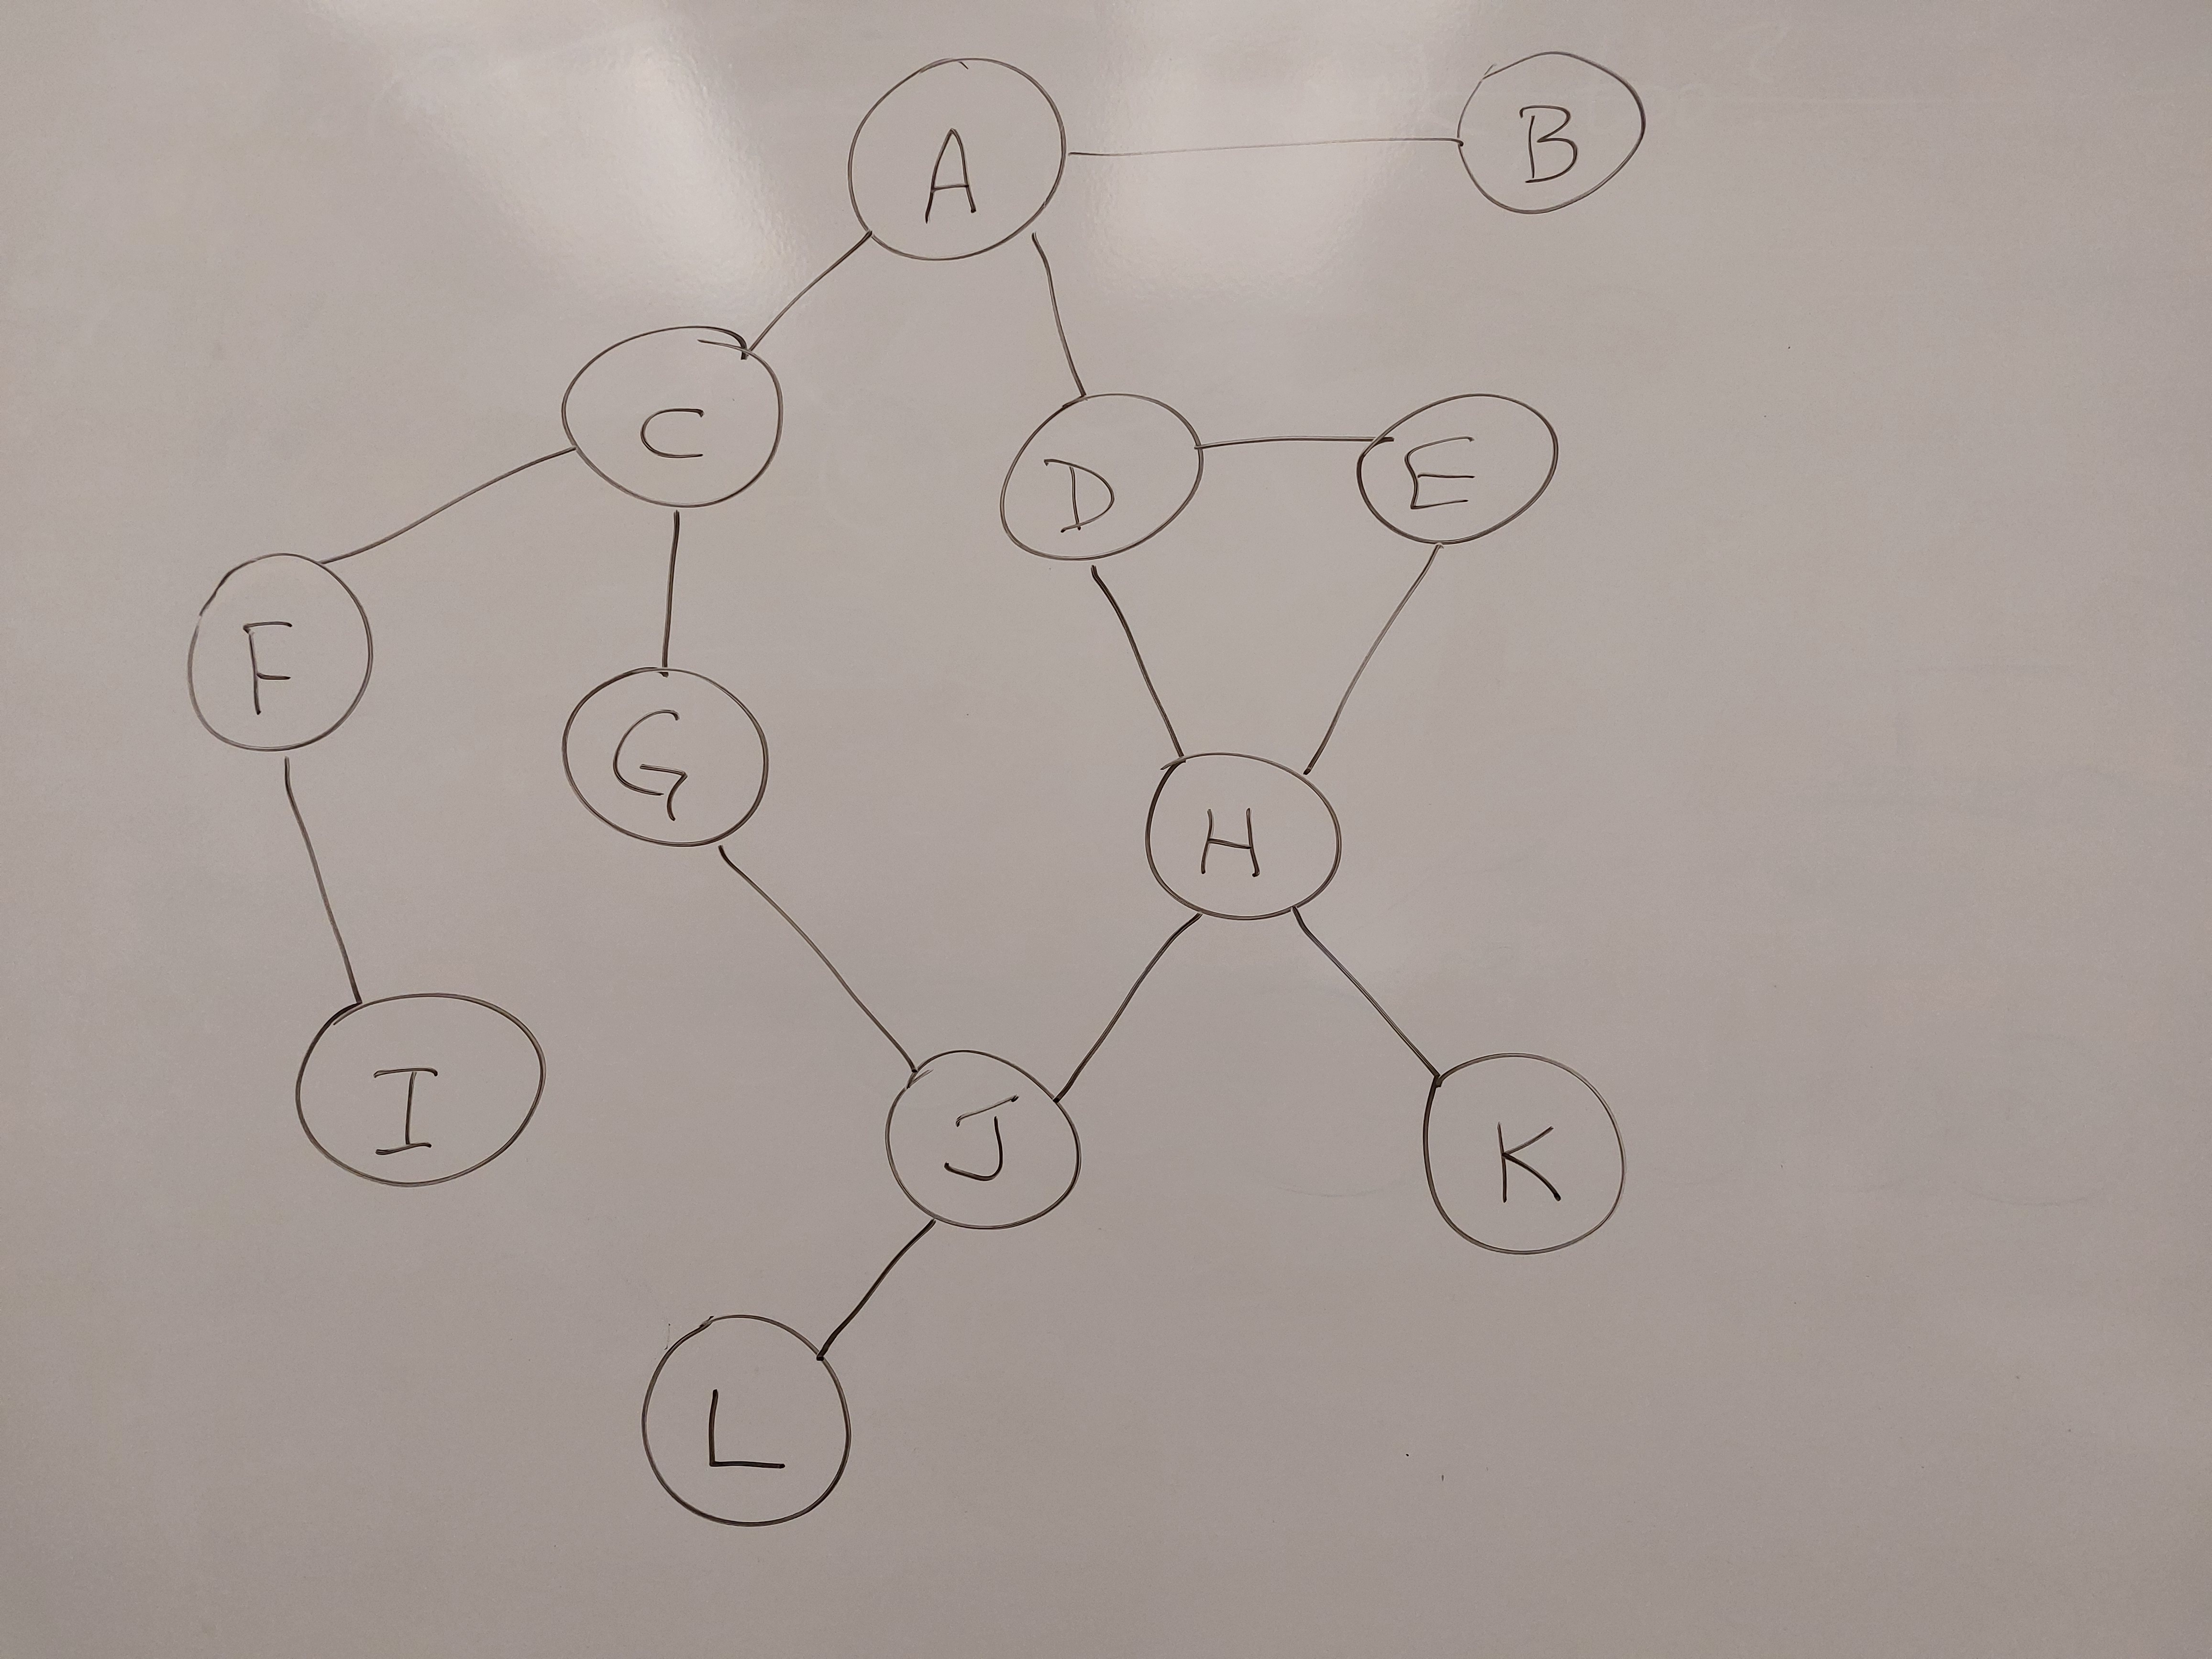 A
B
C
D
E
F
G
H
I
J
K
L